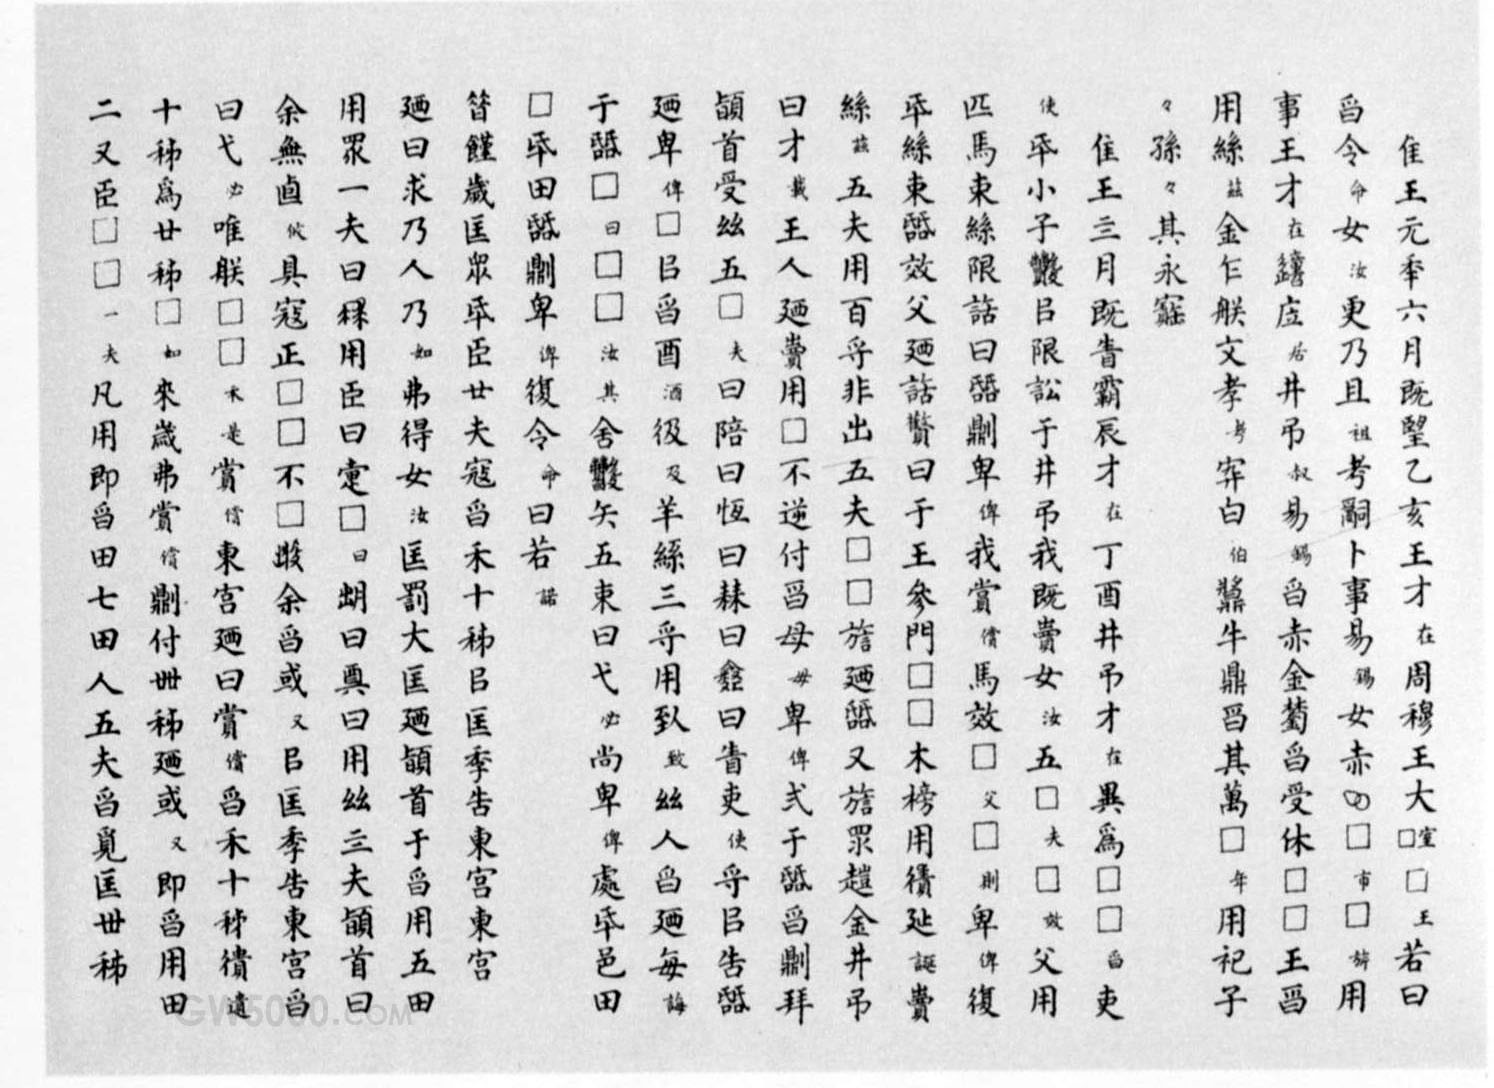 隹王元年六月既朢乙亥王才在周穆王大□室□王若曰
曶令命女汝更乃且祖考嗣卜事易錫女赤□市□旂用
事王才在居井弔叔易錫曶赤金曶受休□□王曶
用絲茲金乍朕文孝考宑白伯牛鼎曶其萬□年用祀子
々孫々其永寶
隹王三月既眚霸辰才在丁酉井弔才在異爲□□曶吏
使氒小子㠯限訟于井弔我既賣女汝五□夫□效父用
匹馬束絲限誥曰鼎卑俾我賞償馬效□父□則卑俾復
氒絲束效父廼誥曰于王參門□□木榜用徝延誕賣
絲茲五夫用百寽非出五夫□□旝廼又旝眾趞金井弔
曰才載王人廼賣用□不逆付曶母毋卑俾弍于曶鼎拜
䭫首受絲五□夫曰陪曰恆曰曰曰眚吏使寽㠯告
廼卑俾□㠯曶酉酒彶及羊絲三寽用致絲人曶廼每誨
于□曰□□汝其舍矢五束曰弋必尚卑俾處氒邑田
□氒田卑俾復令命曰若諾
昔饉歲匡眾氒臣廿夫寇曶禾十秭㠯匡季告東宮東宮
廼曰求乃人乃如弗得女汝匡罰大匡廼䭫首于曶用五田
用眾一夫曰用臣曰疐□曰朏曰奠曰用絲三夫䭫首曰
余無卣攸具寇正□□不□余曶或又㠯匡季告東宮曶
曰弋必唯朕□□禾是賞償東宮廼曰賞償曶禾十秭遺
十秭爲廿秭□如來歲弗賞償付卌秭廼或又即曶用田
二又臣□□一夫凡用即曶田七田人五夫曶覓匡卅秭
GW5000.COM